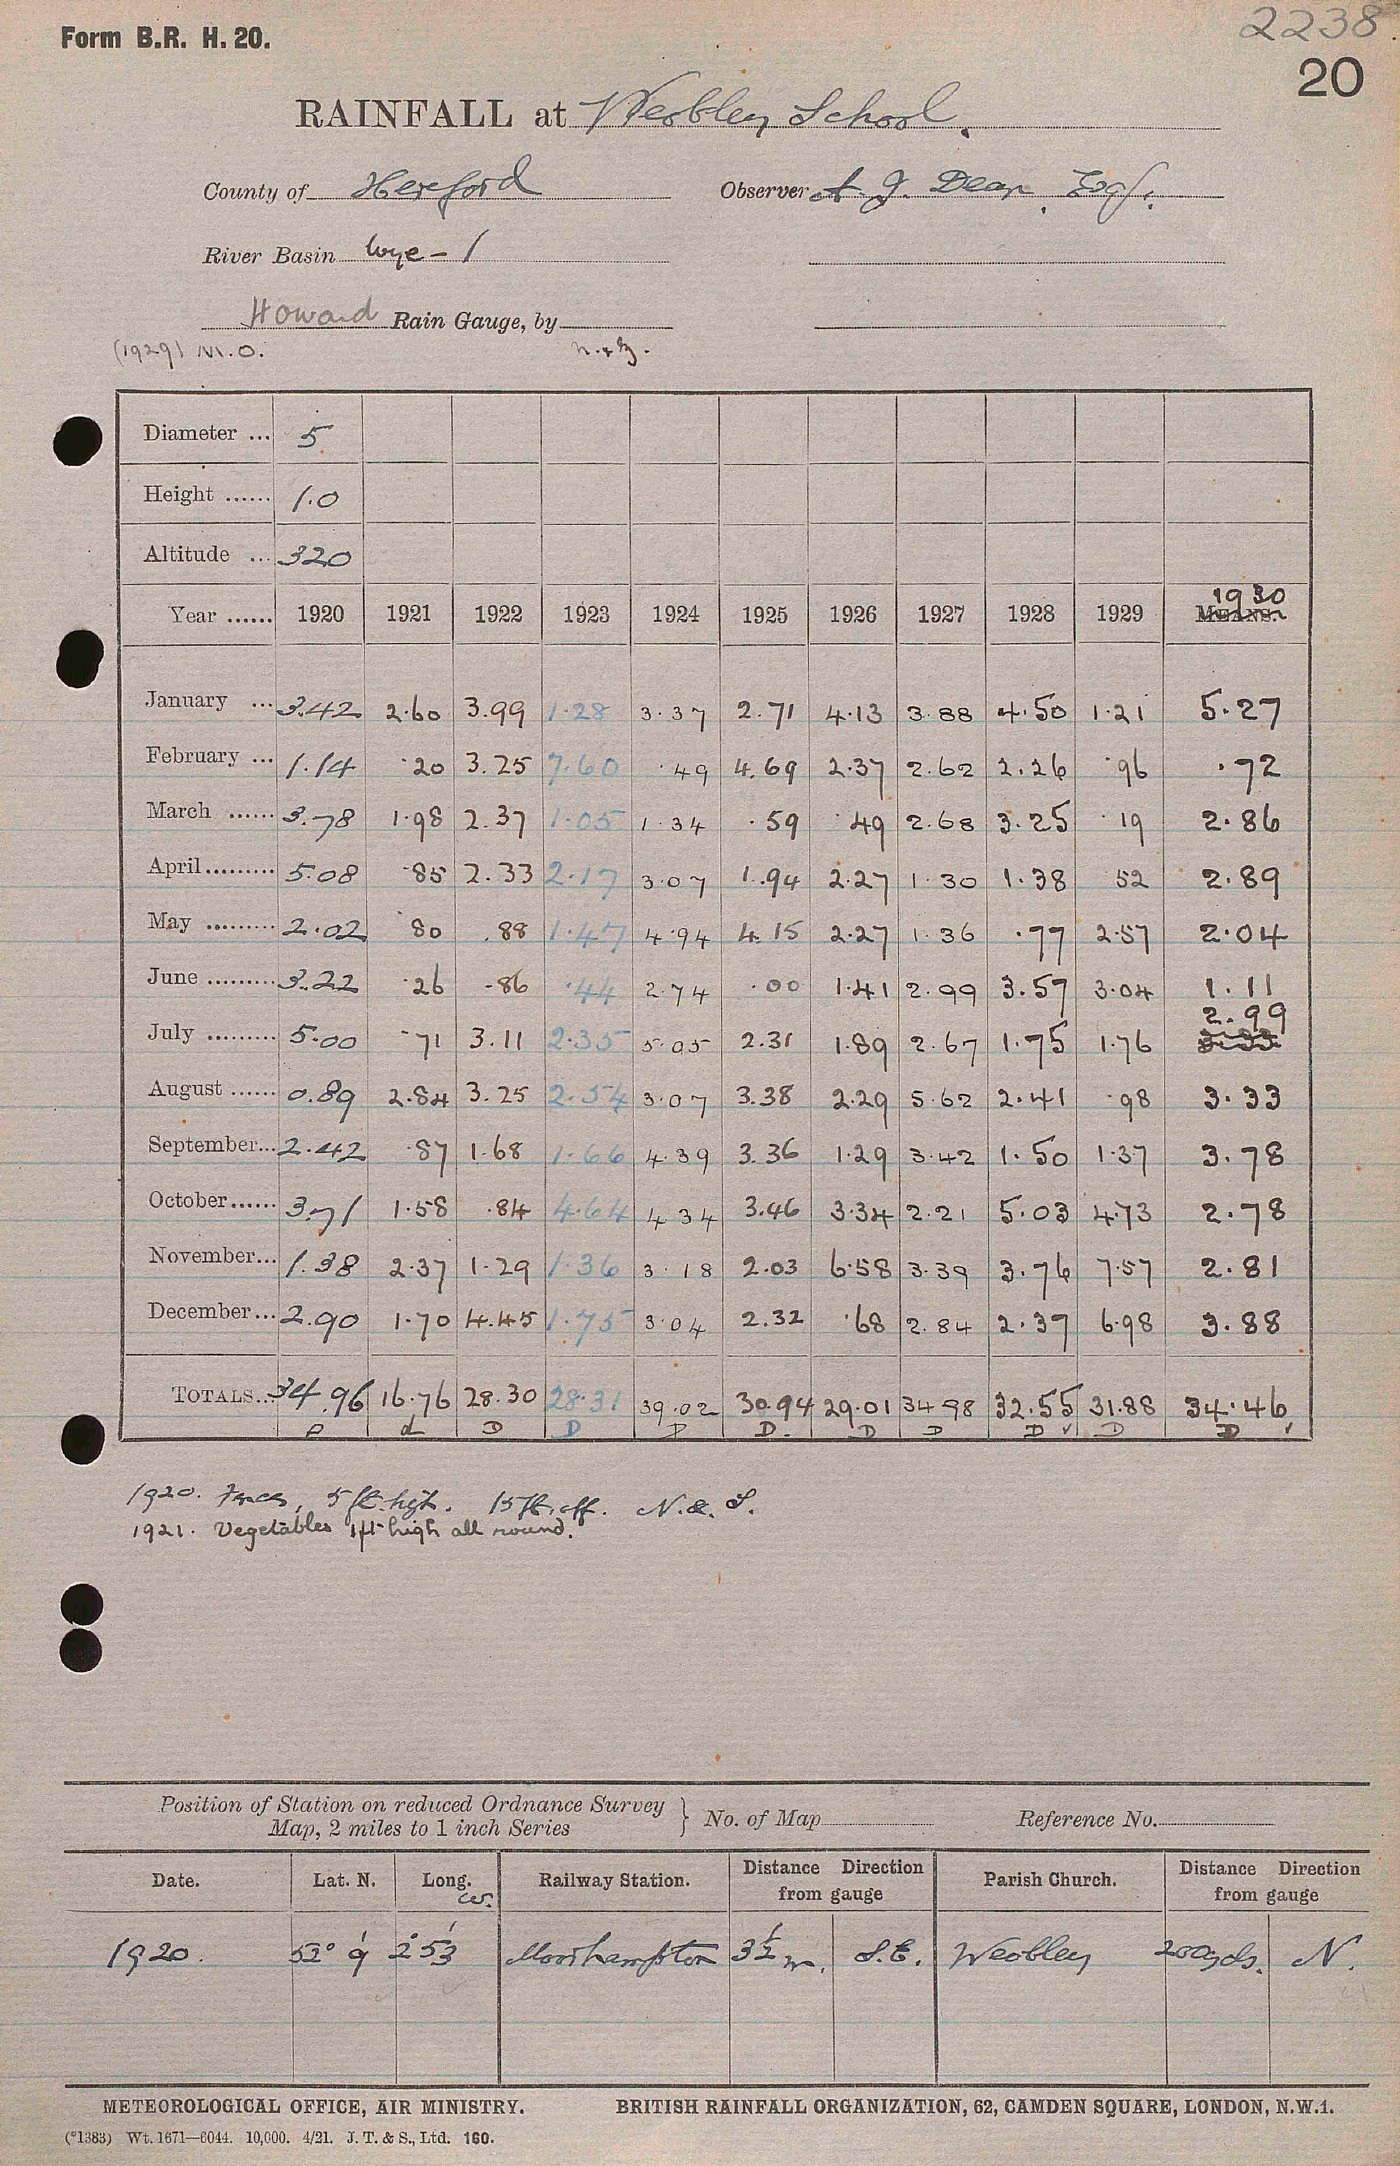 Form B.R. H. 20.
2238
20
RAINFALL at Weobley School.
County of Hereford Observer A. J. Dean, Esq.
River Basin Wye - 1
Howard Rain Gauge, by
(1929) M.O.
Diameter ... 5
Height ...... 1.0
Altitude ... 320
1930
Year ...... 1920 1921 1922 1923 1924 1925 1926 1927 1928 1929 MEANS.
January ... 3.42 2.60 3.99 1.28 3.37 2.71 4.13 3.88 4.50 1.21 5.27
February ... 1.14 .20 3.25 7.60 .49 4.69 2.37 2.62 2.26 .96 .72
March ...... 3.78 1.98 2.37 1.05 1.34 .59 .49 2.68 3.25 .19 2.86
April......... 5.08 .85 2.33 2.17 3.07 1.94 2.27 1.30 1.38 52 2.89
May ......... 2.02 .80 .88 1.47 4.94 4.15 2.27 1.36 .77 2.57 2.04
June ......... 3.22 .26 .86 .44 2.74 .00 1.41 2.99 3.57 3.04 1.11
2.99
July ......... 5.00 .71 3.11 2.35 5.05 2.31 1.89 2.67 1.75 1.76 3.33
August ...... 0.89 2.84 3.25 2.54 3.07 3.38 2.29 5.62 2.41 .98 3.33
September... 2.42 .87 1.68 1.66 4.39 3.36 1.29 3.42 1.50 1.37 3.78
October...... 3.71 1.58 .84 4.64 4.34 3.46 3.34 2.21 5.03 4.73 2.78
November... 1.38 2.37 1.29 1.36 3.18 2.03 6.58 3.39 3.76 7.57 2.81
December... 2.90 1.70 4.45 1.75 3.04 2.32 .68 2.84 2.37 6.98 3.88
TOTALS... 34.96 16.76 28.30 28.31 39.02 30.94 29.01 34.98 32.55 31.88 34.46
D d D D D D. D D D D D
1920. Fences, 5 ft. high. 15 ft. off. N. & S.
1921. Vegetables 1ft high all round.
Position of Station on reduced Ordnance Survey
Map, 2 miles to 1 inch Series
No. of Map Reference No.
Date. Lat. N. Long. W. Railway Station. Distance Direction from gauge Parish Church. Distance Direction from gauge
1920. 52° 9' 2° 53' Moorhampton 3½ m. S.E. Weobley 200yds. N.
METEOROLOGICAL OFFICE, AIR MINISTRY. BRITISH RAINFALL ORGANIZATION, 62, CAMDEN SQUARE, LONDON, N.W.1.
(*1383) Wt. 1671—6044. 10,000. 4/21. J. T. & S., Ltd. 160.